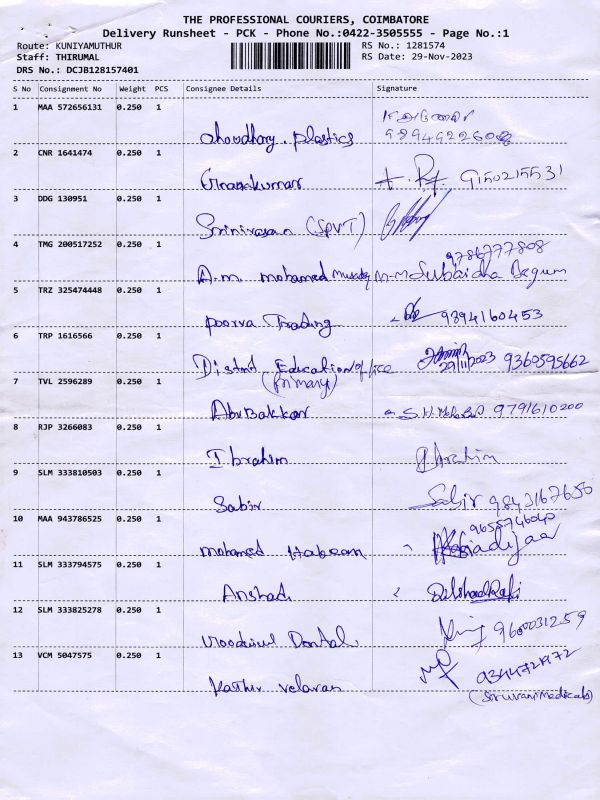 THE PROFESSIONAL COURIERS, COIMBATORE
Delivery Runsheet - PCK - Phone No.:0422-3505555 - Page No.:1
Route: KUNIYAMUTHUR RS No.: 1281574
Staff: THIRUMAL RS Date: 29-Nov-2023
DRS No.: DCJB128157401
S No Consignment No Weight PCS Consignee Details Signature
1 MAA 572656131 0.250 1
choudhary. plastics
2 CNR 1641474 0.250 1
Gnanakumar 9150215531
3 DDG 130951 0.250 1
Srinivasan (SPVT)
4 TMG 200517252 0.250 1 9786777808
A.m. mohamed M-M Subaidha Begum
5 TRZ 325474448 0.250 1
Poorva Trading 9894160453
6 TRP 1616566 0.250 1
District Education office 29/11/2023 9360595662
(Primary)
7 TVL 2596289 0.250 1
AbuBakkar 9791610200
8 RJP 3266083 0.250 1
Ibrahim
9 SLM 333810503 0.250 1
Sabir Sabir 9843167650
10 MAA 943786525 0.250 1 9655746040
mohamed
11 SLM 333794575 0.250 1
Arshad
12 SLM 333825278 0.250 1
Dental 9600031259
13 VCM 5047575 0.250 1
Kathir velavan
(Siruvani Medicals)